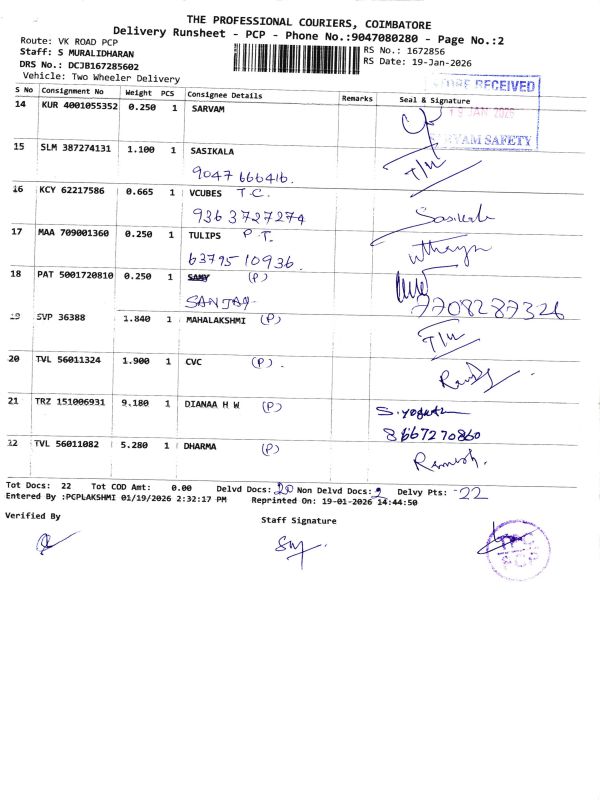 THE PROFESSIONAL COURIERS, COIMBATORE
Delivery Runsheet - PCP - Phone No.:9047080280 - Page No.:2
Route: VK ROAD PCP
Staff: S MURALIDHARAN RS No.: 1672856
DRS No.: DCJB167285602 RS Date: 19-Jan-2026
Vehicle: Two Wheeler Delivery
RECEIVED
S No Consignment No Weight PCS Consignee Details Remarks Seal & Signature
19 JAN 2026
14 KUR 4001055352 0.250 1 SARVAM
SAFETY
15 SLM 387274131 1.100 1 SASIKALA T/W
9047 666416.
16 KCY 62217586 0.665 1 VCUBES T.C.
936 3727274 Sasikala
17 MAA 709001360 0.250 1 TULIPS P.T.
63795 10936.
18 PAT 5001720810 0.250 1 SAMY (P)
SANJAY 7708287326
19 SVP 36388 1.840 1 MAHALAKSHMI (P)
T/W
20 TVL 56011324 1.900 1 CVC (P).
21 TRZ 151006931 9.180 1 DIANAA H W (P)
8667270860
22 TVL 56011082 5.280 1 DHARMA (P)
Ramesh.
Tot Docs: 22 Tot COD Amt: 0.00 Delvd Docs: 20 Non Delvd Docs: 2 Delvy Pts: 22
Entered By :PCPLAKSHMI 01/19/2026 2:32:17 PM Reprinted On: 19-01-2026 14:44:50
Verified By Staff Signature